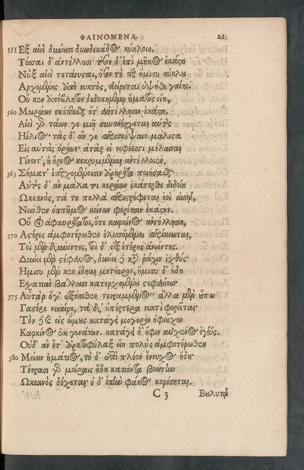 ΦΑΙΝΟΜΕΝΑ. 21
555 Ἓξ αἰεὶ δύνουσι δυωδεκάδες κύκλοιο,
Τόσσαι δ' ἀντέλλουσι· τόσον δ' ἐπὶ μῆκος ἑκάστη
Νὺξ αἰεὶ τετάνυσται, ὅσον τε ἥμισυ κύκλου
Ἀρχομένης ἀπὸ νυκτὸς ἀείρεται ὑψόθι γαίης.
Οὔ κεν ἀπόβλητον δεδοκημένῳ ἤματος εἴη,
560 Μοιράων σκέπτεσθαι ὅτ' ἀντέλλησιν ἑκάστη.
Αἰεὶ γὰρ τάων γε μιῇ συνανέρχεται αὐτὸς
Ἠέλιος· τὰς δ' ἄν γε μάλιστα
Εἰς αὐτὰς ὁρόων· ἀτὰρ εἰ νεφέεσσι μέλαιναι
Γίνοντ', ἢ ὄρεος κεκρυμμέναι ἀντέλλοιεν,
565 Σήματ' ἐπερχομένῃσιν ἀρηρότα ποιήσασθαι.
Αὐτὸς δ' ἂν μάλα τοι κεράων ἑκάτερθε διδοίη
Ὠκεανός, τά τε πολλὰ περιστέφεται ἑοῖ αὐτῷ,
Νειόθεν ὁππῆμος κείνων φορέῃσιν ἑκάστην.
Οὔ οἱ ἀφαυρότατοι, ὅτε καρκίνος ἀντέλλῃσιν,
570 Ἀστέρες ἀμφοτέρωθεν ἑλισσόμενοι περίκεινται,
Τοὶ μὲν δύνοντες, τοὶ δ' ἐξ ἑτέρης ἀνιόντες.
Δύνει μὲν στέφανος, δύνει δὲ κατὰ ῥάχιν ἰχθύς·
Ἥμισυ μέν κεν ἴδηαι μετήορον, ἥμισυ δ' ἤδη
Ἐσχατιαὶ βάλλουσι κατερχομένου στεφάνοιο·
575 Αὐτὰρ ὅγ' ἐξόπιθεν τετραμμένος ἄλλα μὲν οὔπω
Γαστέρι νειαίρῃ, τὰ δ' ὑπέρτερα νυκτὶ φορεῖται·
Τὸν δὲ καὶ εἰς ὤμους κατάγει μογερὸν ὀφιοῦχον
Καρκίνος ἐκ γονάτων· κατάγει δ' ὄφιν αὐχένος ἐγγύς.
Οὐδ' ἂν ἔτ' ἀρκτοφύλαξ εἴη πολὺς ἀμφοτέρωθεν
580 Μείων ἠμάτιος, τὸ δ' ἐπὶ πλέον ἔννυχος ἤδη
Τέτρασι γὰρ μοίραις ἤδη κατιόντα βοώτην
Ὠκεανὸς δέχεται· ὁ δ' ἐπὴν φάεος κορέσηται.
C 3 Βουλυτῷ